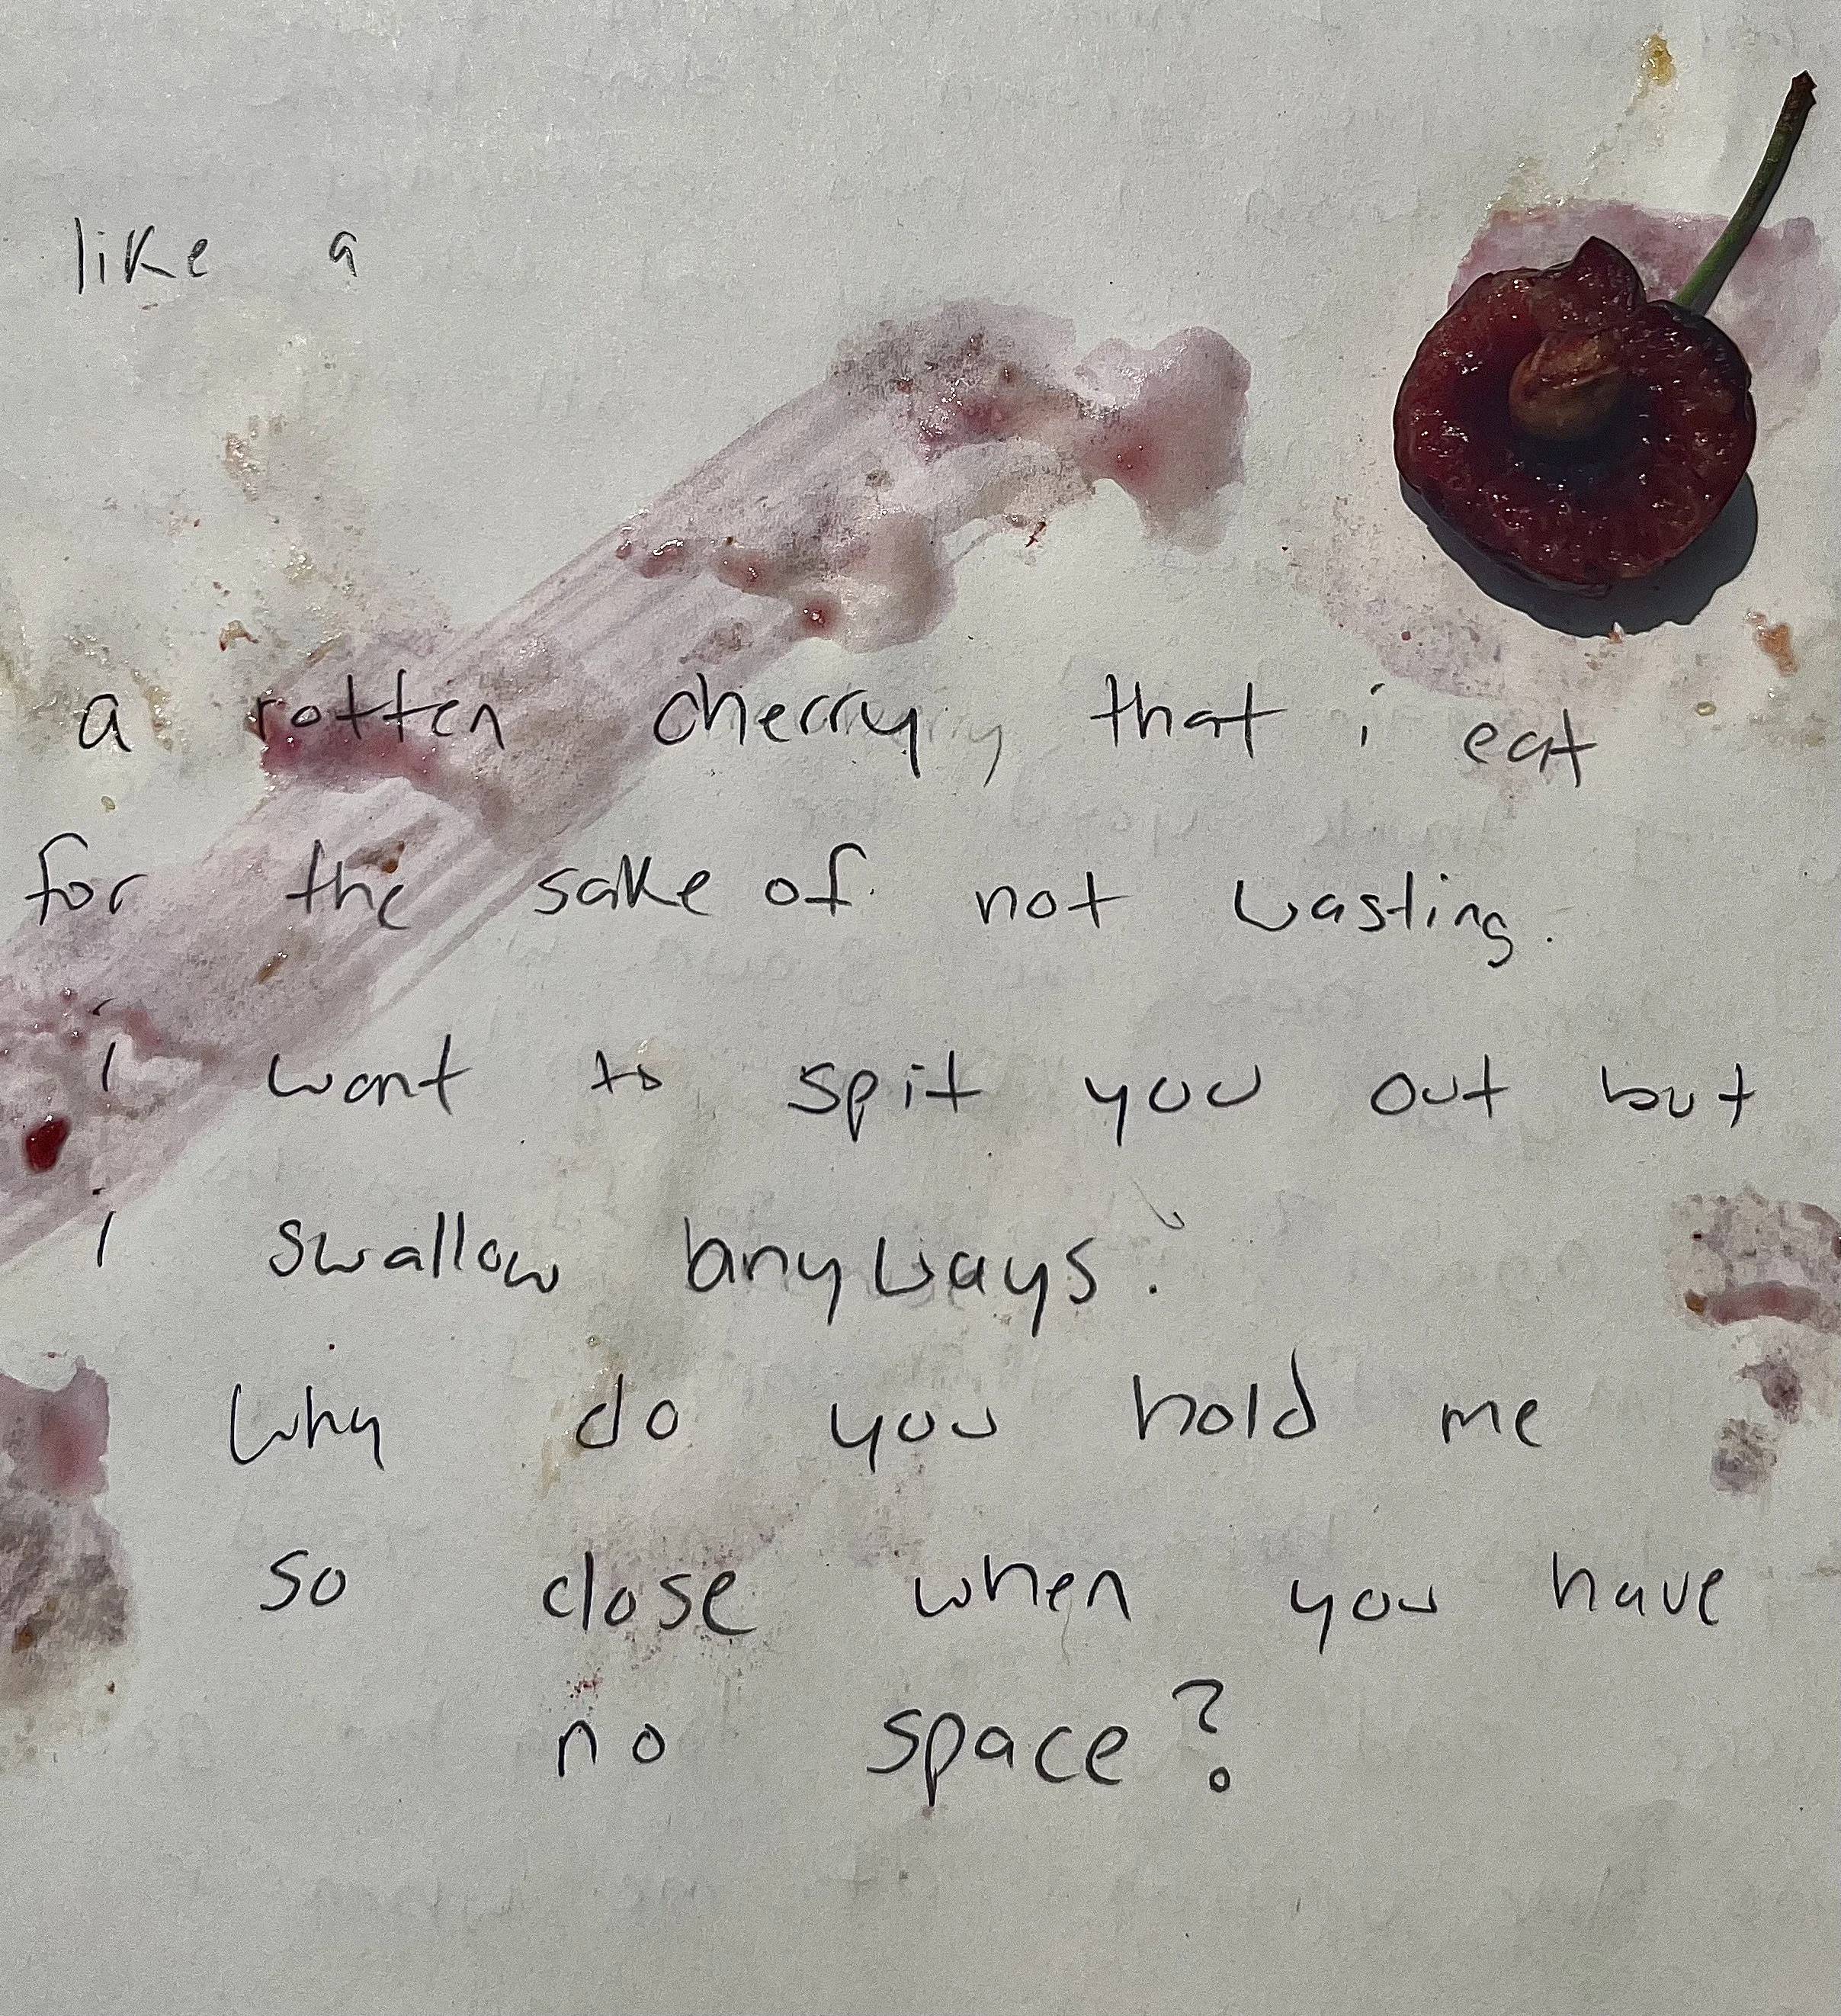 like a
a rotten cherry that i eat
for the sake of not wasting.
i want to spit you out but
i swallow anyways.
why do you hold me
so close when you have
no space?